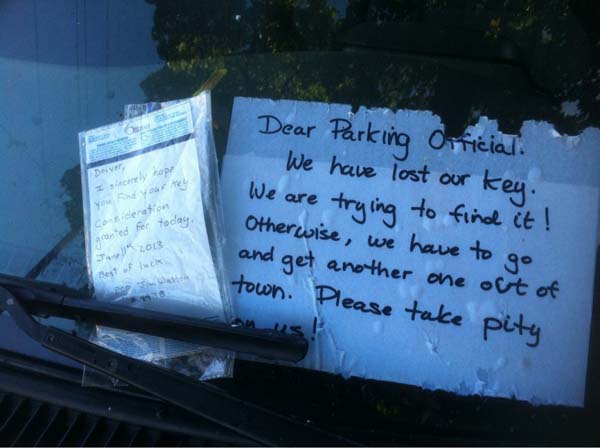 Driver,
I sincerely hope
you find your key
Consideration
granted for today.
June 11th 2013
Best of luck
Jim Watson
Dear Parking Official.
We have lost our key.
We are trying to find it!
Otherwise, we have to go
and get another one out of
town. Please take pity
on us!